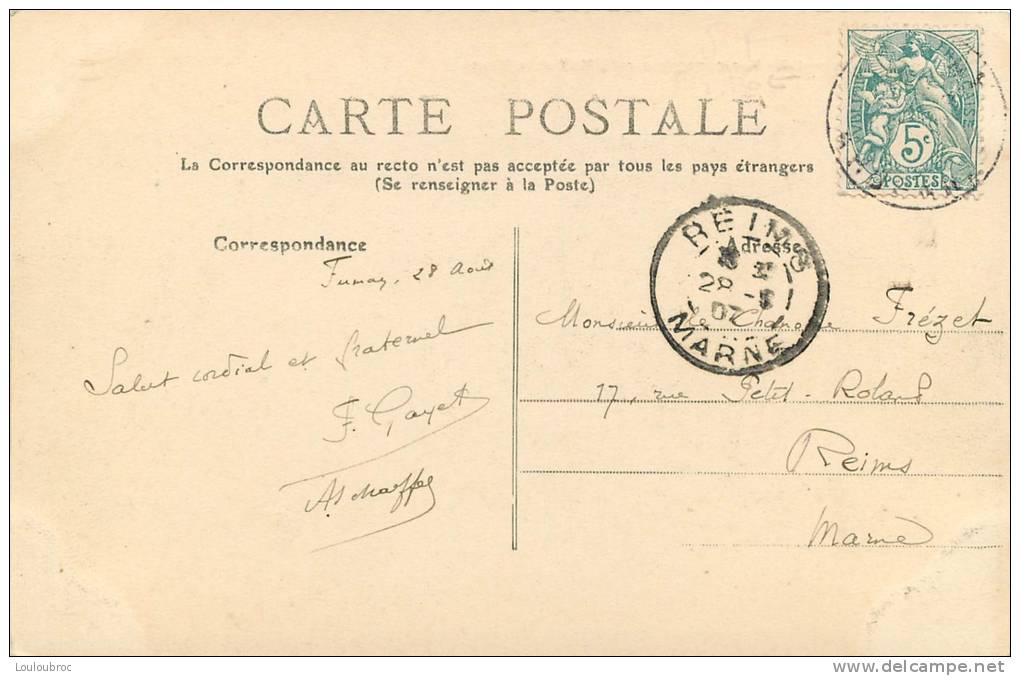 CARTE POSTALE
La Correspondance au recto n'est pas acceptée par tous les pays étrangers
(Se renseigner à la Poste)
Correspondance
Adresse
5c
POSTES
REIMS
28 -8
07
MARNE
Fumay, 28 Août
Salut cordial et fraternel
F. Gayet
Monsieur le Chanoine Frézet
17, rue Petit-Roland
Reims
Marne
Louloubroc
www.delcampe.net